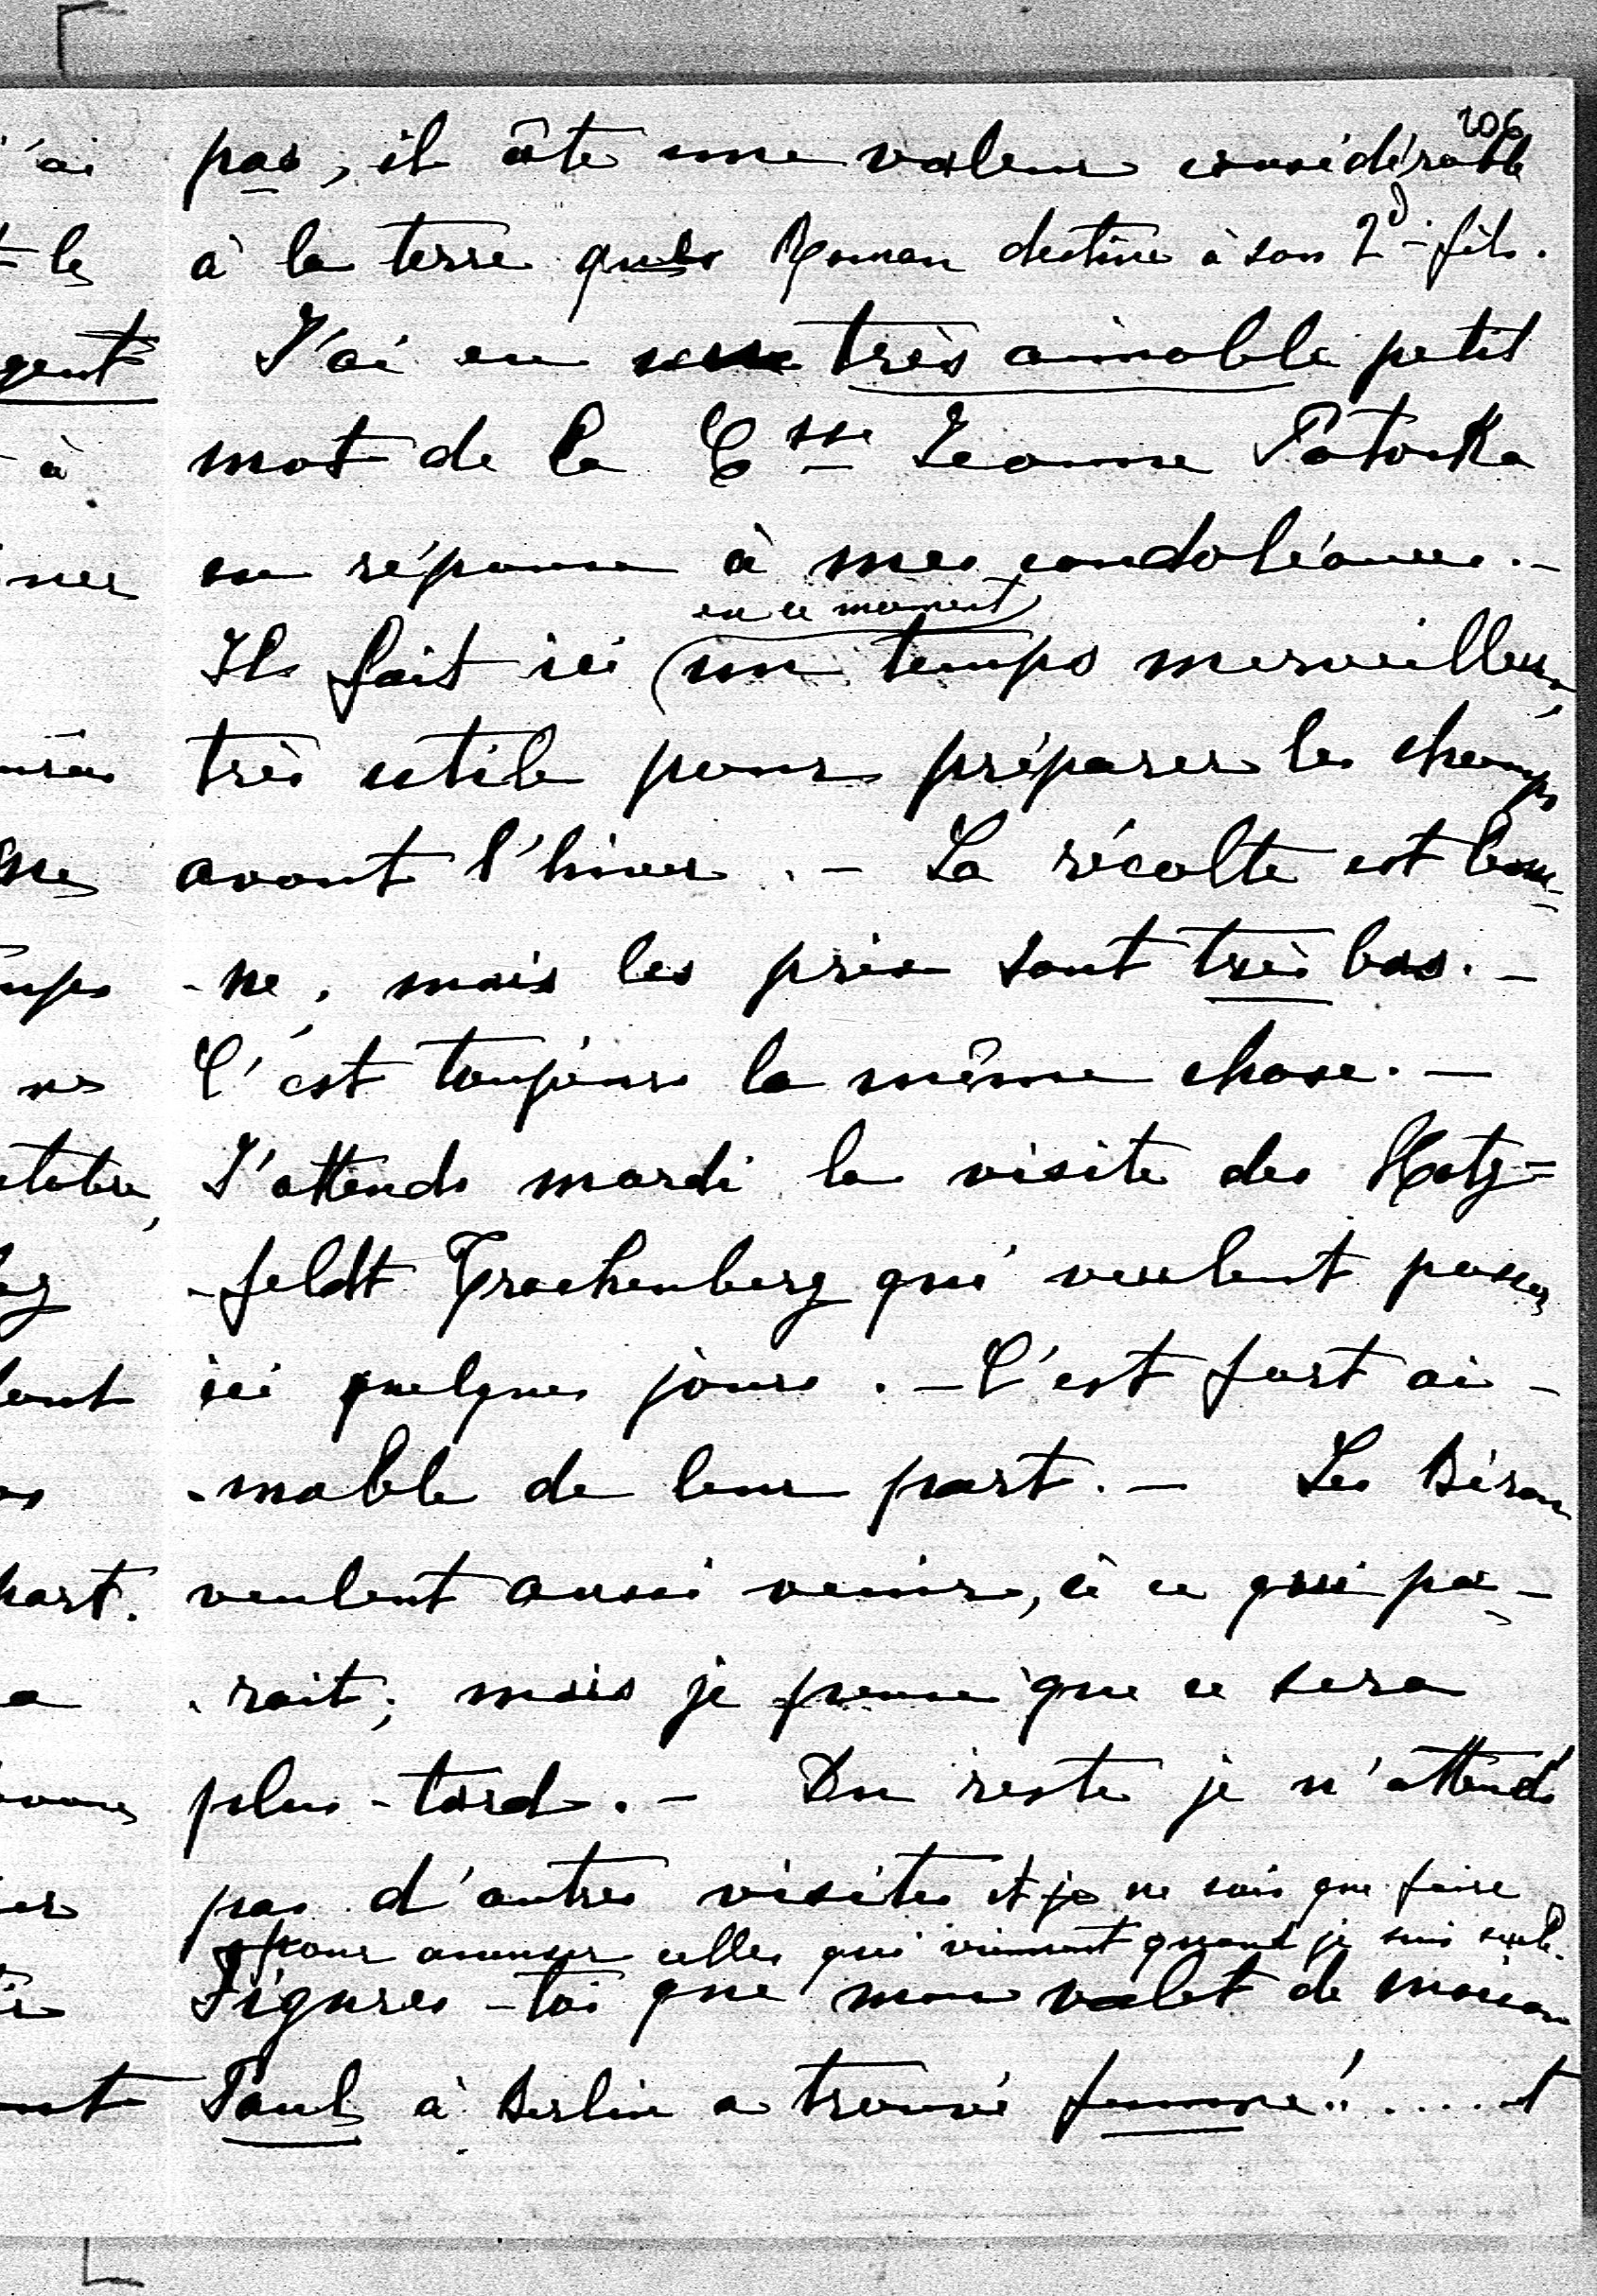 106
pas, il ôte une valeur considérable
à la terre que Roman destine à son 2d fils.
J'ai eu un très aimable petit
mot de la Ctsse Jeanne Potocka
en réponse à mes condoléances. -
en ce moment
Il fait ici un temps merveilleux,
très utile pour préparer les champs
avant l'hiver. - La récolte est bon-
-ne, mais les prix sont très bas. -
C'est toujours la même chose. -
J'attends mardi la visite des Hatz=
-feldt Trachenberg qui veulent passer
ici quelques jours. - C'est fort ai-
-mable de leur part. - Les Biron
veulent aussi venir, à ce qui pa-
-rait; mais je pense que ce sera
plus-tard. - Du reste je n'attends
pas d'autres visites et je ne sais que faire
pour amuser celles qui viennent quand je suis seule.
Figures-toi que mon valet de maison
Paul à Berlin a trouvé femme!! .... et